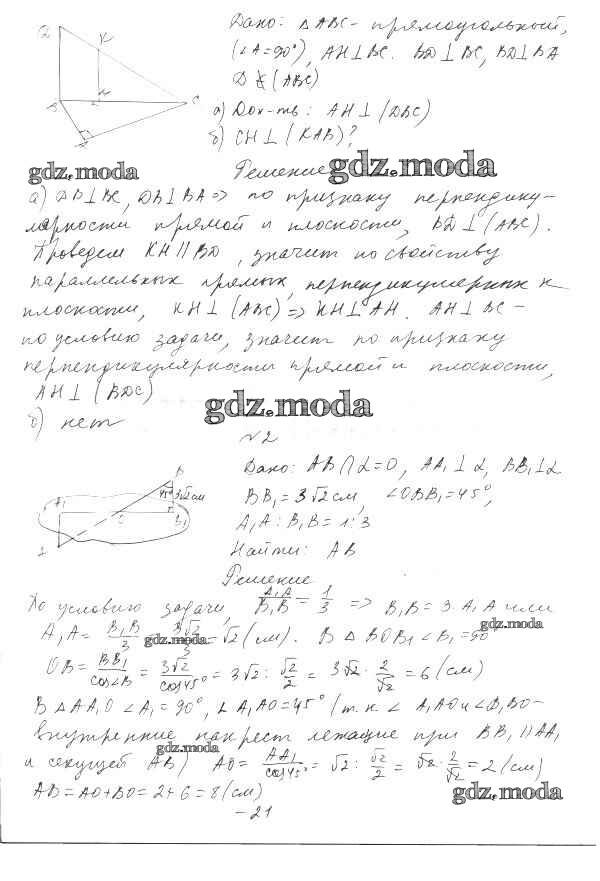 Дано: △ABC - прямоугольный,
(∠A=90°), AH⊥BC. BD⊥BC, BD⊥BA
D ∉ (ABC)
а) Док-ть: AH⊥(DBC)
б) CH⊥(KAB)?
D
K
B
H
C
A
Решение
gdz.moda
gdz.moda
а) DB⊥BC, DB⊥BA => по признаку перпендику-
лярности прямой и плоскости, BD⊥(ABC).
Проведем KH||BD, значит по свойству
параллельных прямых, перпендикулярных к
плоскости, KH⊥(ABC) => KH⊥AH. AH⊥BC -
по условию задачи, значит по признаку
перпендикулярности прямой и плоскости,
AH⊥(BDC)
gdz.moda
б) нет
№2
Дано: AB∩α=O, AA₁⊥α, BB₁⊥α
BB₁=3√2 см, ∠OBB₁=45°,
A₁A : B₁B = 1:3
Найти: AB
B
45°
3√2 см
A₁
B₁
Решение
По условию задачи, A₁A/B₁B = 1/3 => B₁B = 3 A₁A или
A₁A = B₁B/3 = 3√2/3 = √2 (см). В △BOB₁ ∠B₁=90°
gdz.moda
gdz.moda
OB = BB₁/cos∠B = 3√2/cos45° = 3√2 : √2/2 = 3√2 · 2/√2 = 6 (см)
В △AA₁O ∠A₁=90°, ∠A₁AO=45° (т.к. ∠A₁AO и ∠B₁BO -
внутренние накрест лежащие при BB₁||AA₁
gdz.moda
и секущей AB) AO = AA₁/cos45° = √2 : √2/2 = √2 · 2/√2 = 2 (см)
AB = AO+BO = 2+6 = 8 (см)
gdz.moda
- 21